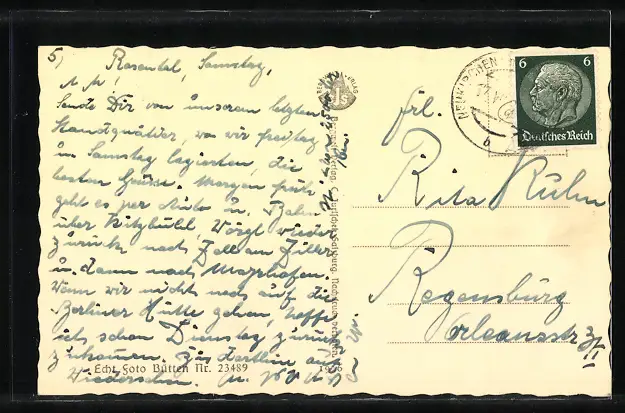 5)
Rosental, Samstag,
Sende Dir von unserem letzten
Standquartier, wo wir freitag
in Samstag logierten, die
besten Grüsse. Morgen früh
geht es per Auto u. Bahn
über Kitzbühl, Wörgl wieder
zurück nach Zell am Ziller
u. dann nach Mayrhofen.
Wenn wir nicht noch auf die
Berliner Hütte gehen, hoffe
ich schon Dienstag zurück
zukommen. Bis dorthin auf
Wiedersehen.
Echt Foto Bütten Nr. 23489
NEUKIRCHEN
b
6 6
Deutsches Reich
Frl.
Rita Kuhn
Regensburg
Orleansstr
II